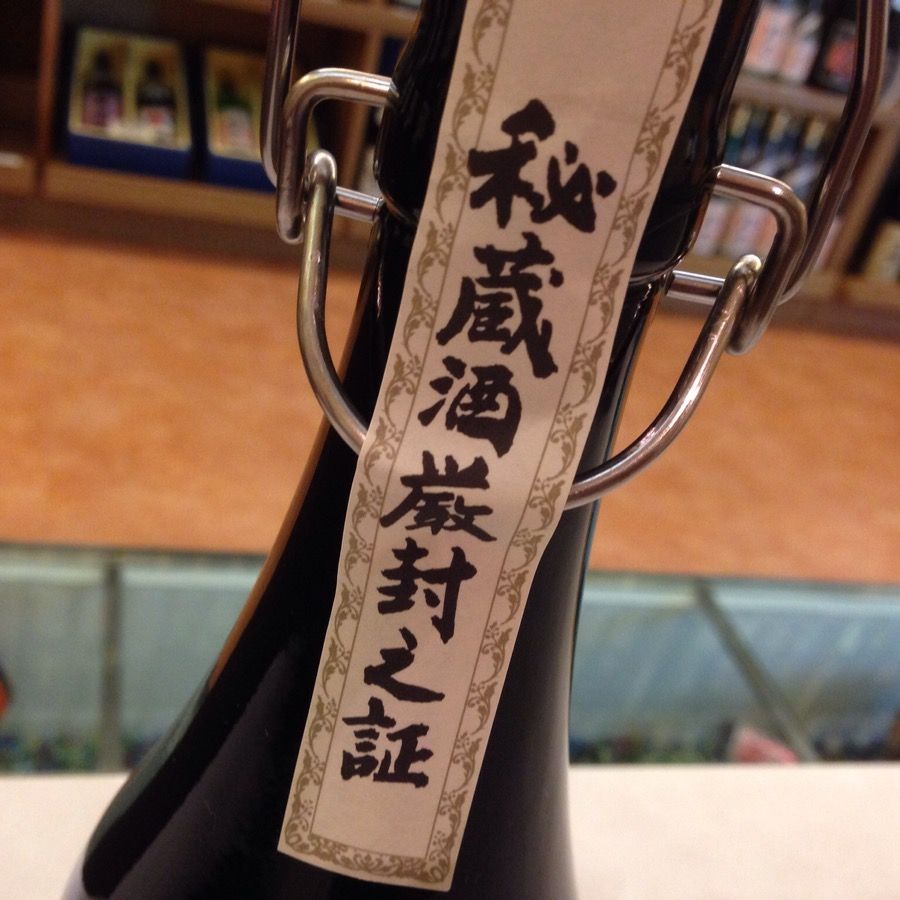 秘蔵酒厳封之証